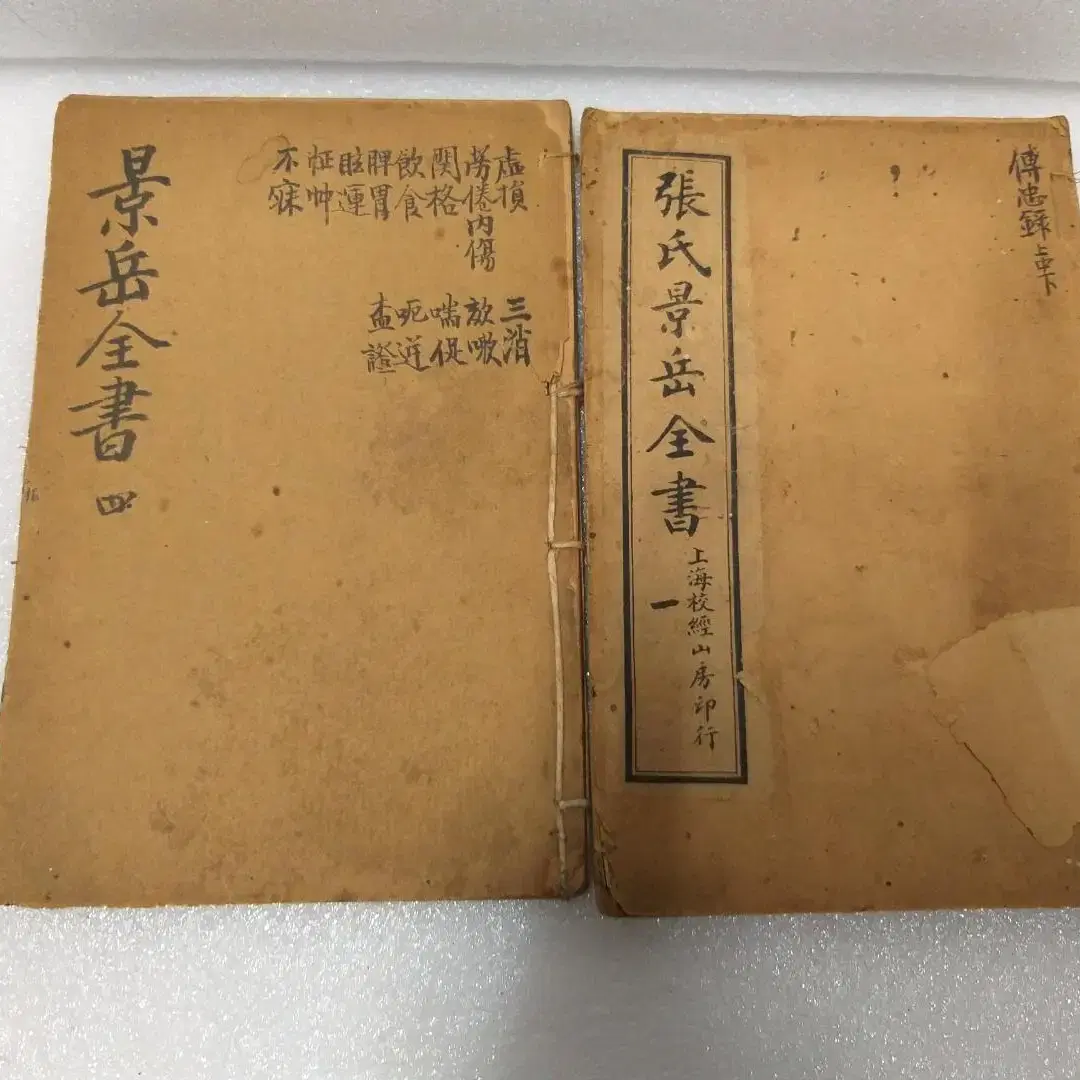 景岳全書
四
虛損
勞倦内傷
関格
飲食
脾胃
眩運
怔忡
不寐
三消
欬嗽
喘促
呃逆
證
張氏景岳全書
一
上海校經山房印行
傳忠錄
上中下